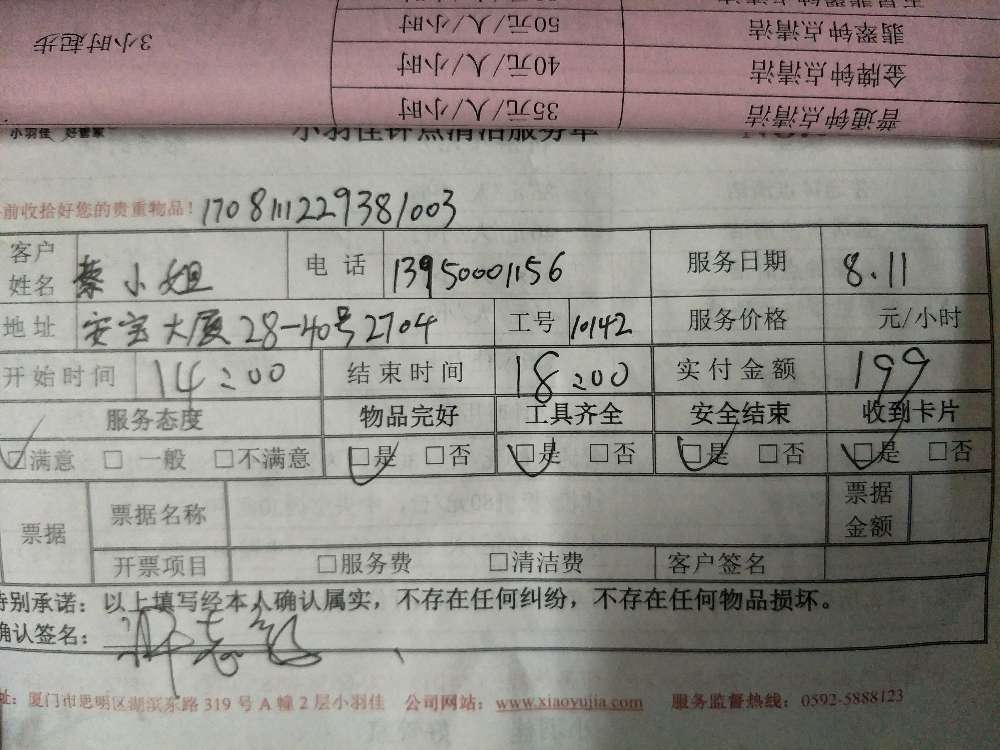 普通钟点清洁 35元/人/小时
金牌钟点清洁 40元/人/小时
翡翠钟点清洁 50元/人/小时
3小时起步
小羽佳 好管家
小羽佳钟点清洁服务单
前收拾好您的贵重物品! 170811122938​1003
客户姓名 秦小姐 电话 13950001156 服务日期 8.11
地址 安宝大厦28-40号2704 工号 10142 服务价格 元/小时
开始时间 14:00 结束时间 18:00 实付金额 199
服务态度 物品完好 工具齐全 安全结束 收到卡片
☑满意 □一般 □不满意 ☑是 □否 ☑是 □否 ☑是 □否 ☑是 □否
票据 票据名称 票据金额
开票项目 □服务费 □清洁费 客户签名
特别承诺：以上填写经本人确认属实，不存在任何纠纷，不存在任何物品损坏。
确认签名：
址：厦门市思明区湖滨东路319号A幢2层小羽佳 公司网站：www.xiaoyujia.com 服务监督热线：0592-5888123